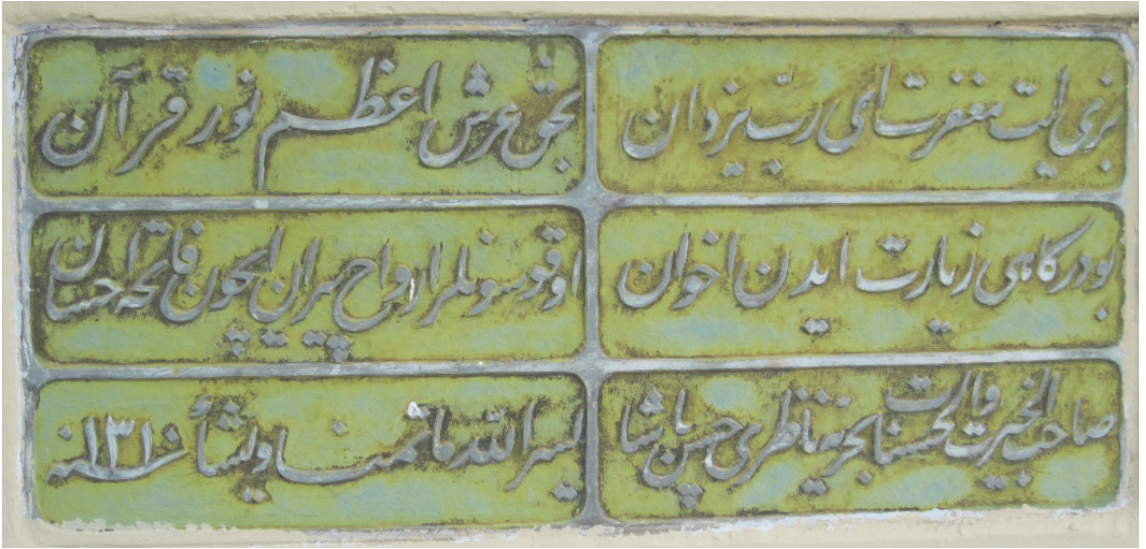 بزی ایت مغفرت ای رب یزدان
بحق عرش اعظم نور قرآن
بو درکاهی زیارت ایدن اخوان
اوقوسونلر ارواح پیران ایچون فاتحه احسان
صاحب الخیرات والحسنات بحریه ناظری حسن پاشا
یسر الله ما تمنا و یشأ سنه ١٣١٠